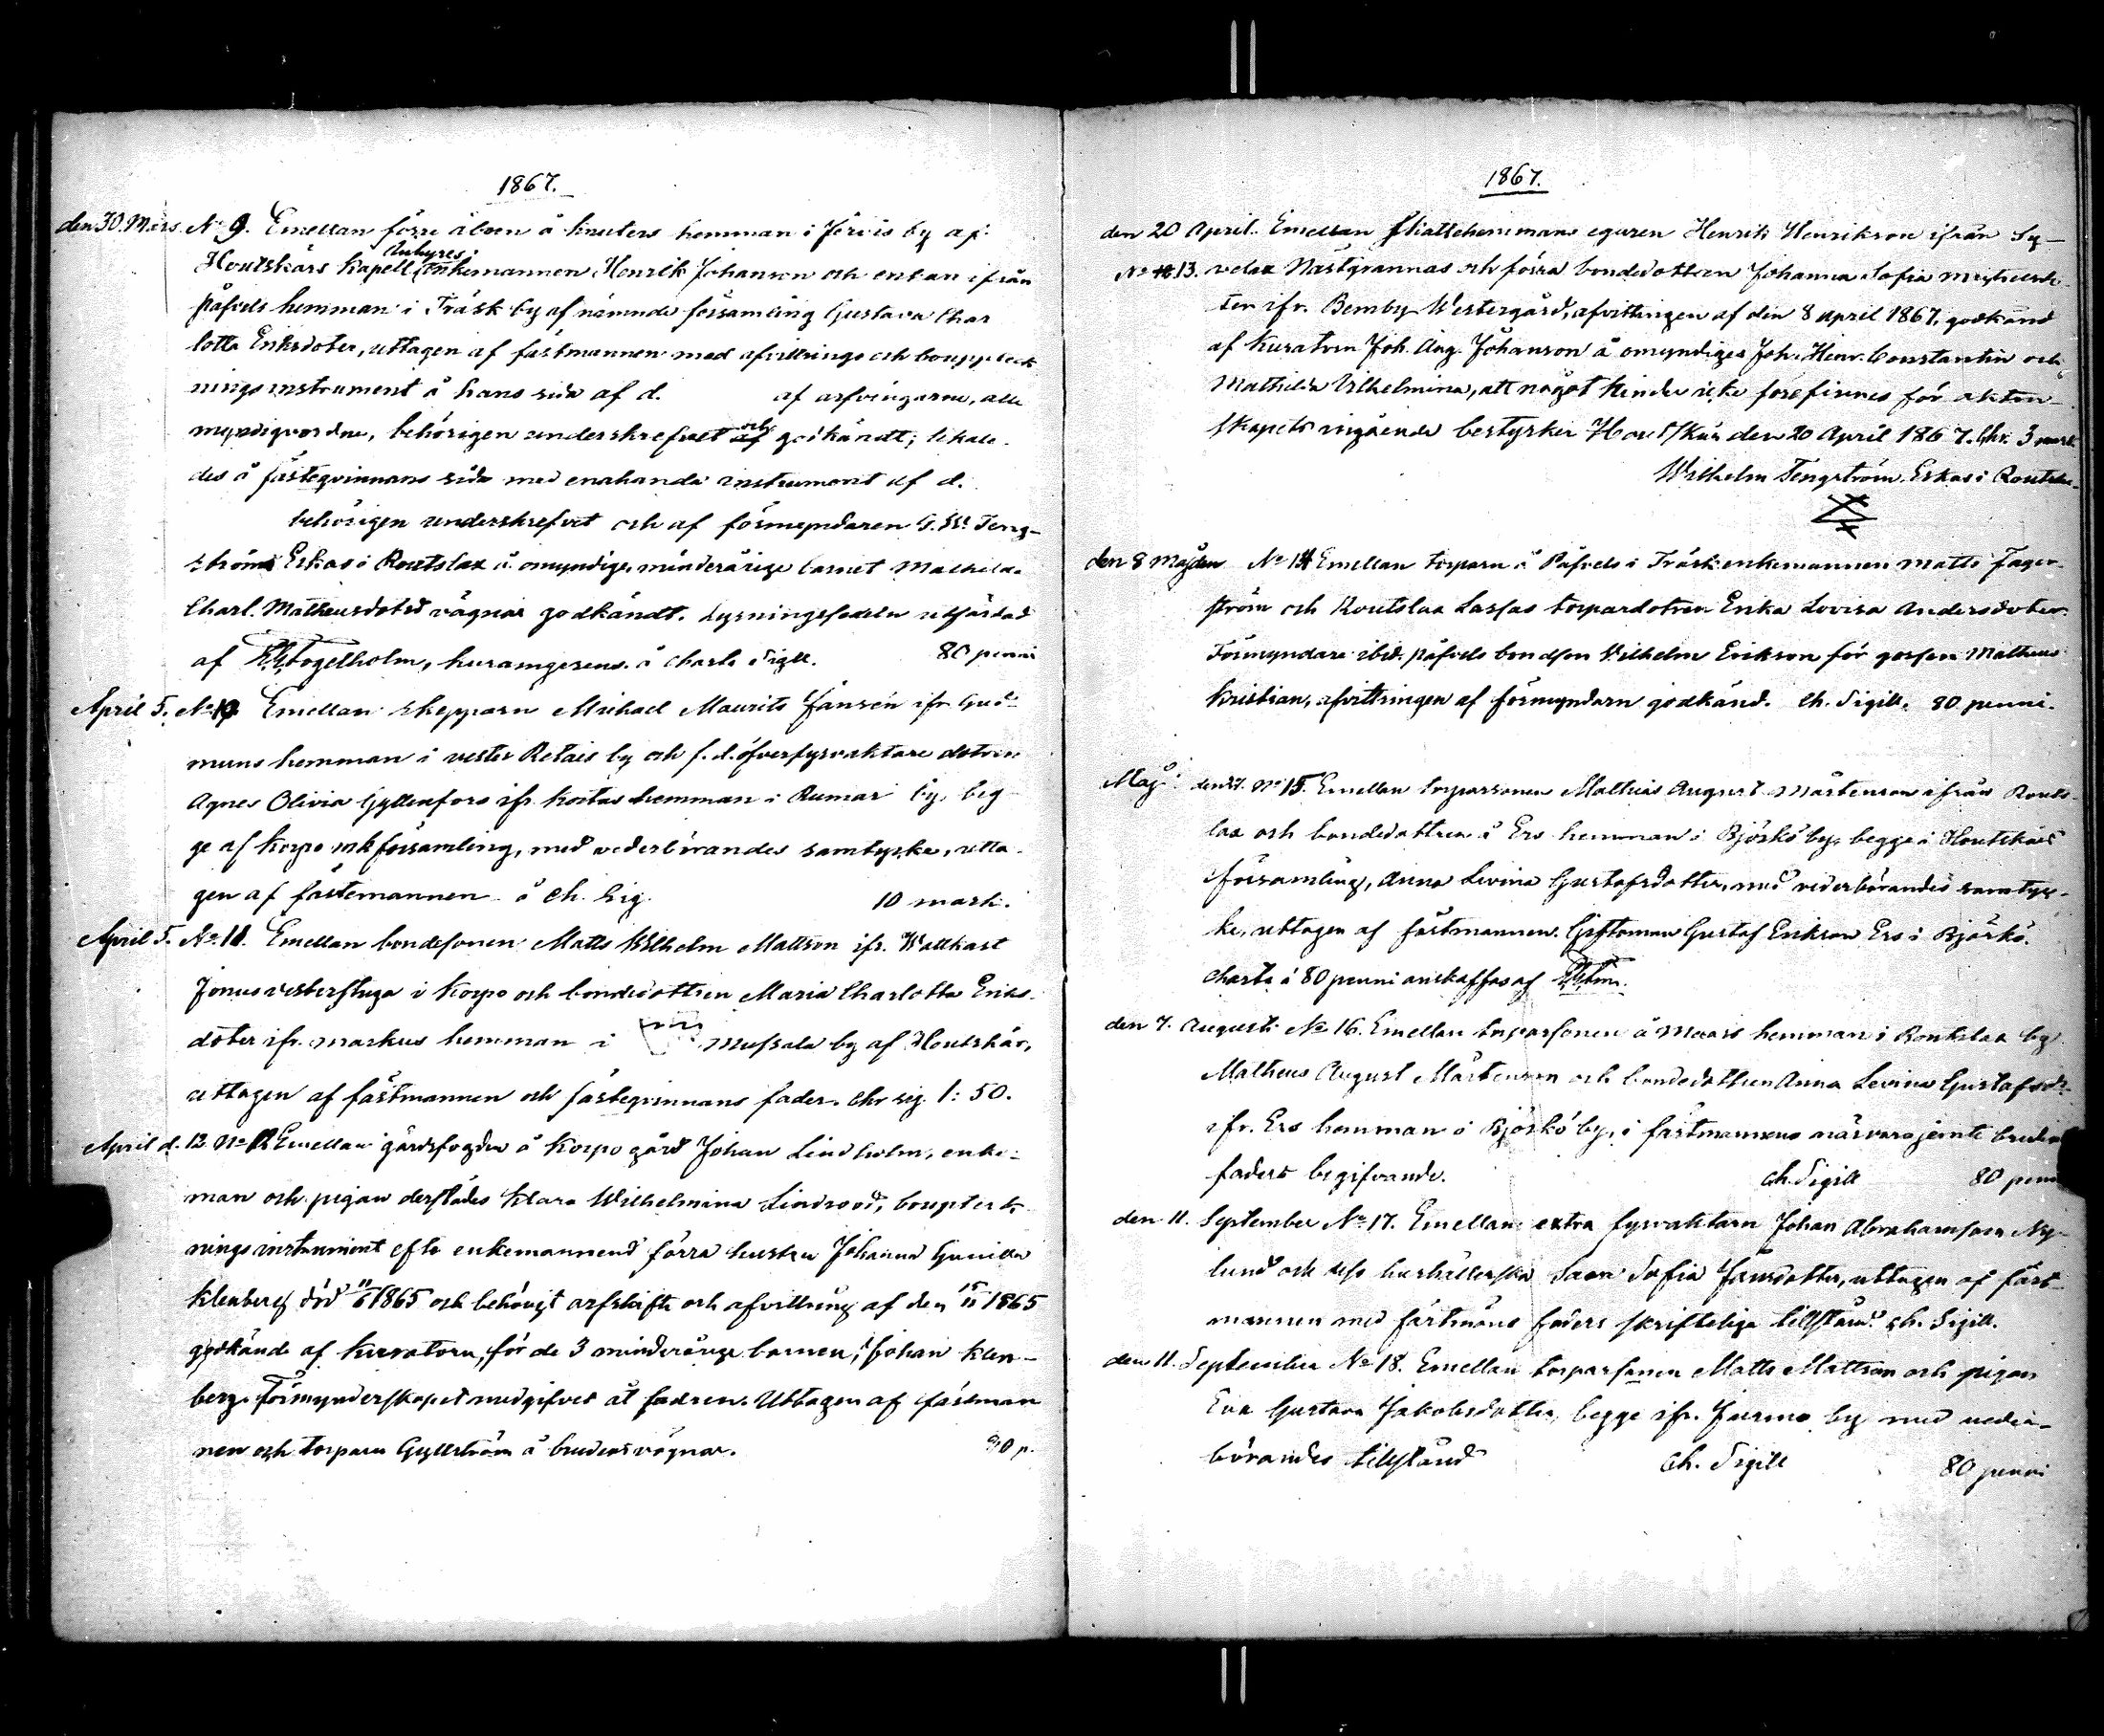 1867.
den 30. Mars. No 9. Emellan förre åboen å Knuters hemman i Jervis by af
Anbyres
Houtskärs Kapell enkemannen Henrik Johanson och enkan ifrån
påfvels hemman i Träsk by af nämnde församling Gustava Char
lotta Eriksdoter, uttagen af fästmannen med afvittrings och bouppteck
nings instrument å hans sida af d. af arfvingarne, alle
myndigvordne, behörigen underskrefvet och godkändt; likale-
des å fästeqvinnans sida med enahanda instrument af d.
behörigen underskrefvet och af förmyndaren G. W. Teng-
ström Erkas i Routslax å omyndiga, minderåriga barnet Mathilda
Charl. Matheusdotrs vägnar godkändt. Lysningssedeln utfärdad
af Fogelholm, kuramgerens. å charta Sigill. 80 penni
April 5. No 10 Emellan skepparn Mickael Maurits Jansén ifr Gud-
muns hemman i vester Retais by och f. d. öfverfyrvaktare dotren
Agnes Olivia Gyllenfors ifr Kortas hemman i Rumar by, beg
ge af Korpo mkförsamling, med vederbörandes samtycke, utta-
gen af fästemannen å Ch. Sig. 10 mark.
April 5. No 11. Emellan bondesonen Matts Wilhelm Mattson ifr. Wattkast
Jönus vesterstuga i Korpo och bondedottren Maria Charlotta Eriks-
doter ifr. Markus hemman i Mossala by af Houtskär,
uttagen af fästmannen och fästeqvinnans fader. Cha sig. 1: 50.
April d. 12. No 12 Emellan gårdsfogden å Korpo gård Johan Lindholm, enke-
man och pigan derstädes Klara Wilhelmina Lindroos, bouptek
nings instrument efter enkemannens förra hustru Johanna Gunilla
Klenberg död 11/6 1865 och behörigt arfskifte och afvittring af den 15/11 1865
godkände af Kuratorn, för de 3 minderåriga barnen, Johan Klen-
berg. Förmynderskapet medgifvet åt fadren. Uttagen af fästman
nen och torparn Gyllström å brudens vägnar. 80 p.
1867.
den 20 April. Emellan Skattehemmans egaren Henrik Henrikson ifrån Sy-
No 13. velax Nästgrannas och förra bondedottren Johanna Sofia Mickelsdo
ter ifr. Bemby Westergård, afvittringen af den 8 april 1867, godkänd
af Kuratorn Joh. Aug. Johanson å omyndiges Joh. Henr. Constantin och
Mathilda Vilhelmina, att något hinder icke förefinnes för äkten-
skapets ingående bestyrker Houtskär den 20 April 1867. Chr. 3 mark
Wilhelm Tengström. Erkas i Routslax.
den 8 Maj No 14 Emellan torparn å Påfvels i Träsk enkemannen Matts Fager-
ström och Routslax Lassas torpardotren Erika Lovisa Andersdoter
Förmyndare ibid. påfvels bondson Vilhelm Erikson för gossen Matheus
Kristian, afvittringen af förmyndarn godkänd. Ch. Sigill. 80 penni.
Maj den No 15. Emellan torparsonen Mathias August Mårtenson ifrån Routs-
lax och bondedottren å Ers hemman i Björkö by, begge i Houtskärs
församling, Anna Levina Gustafsdotter, med vederbörandes samtyc-
ke, uttagen af fästmannen. Giftoman Gustaf Erikson Ers i Björkö.
charta á 80 penni anskaffas af
den 7. Augusti No 16. Emellan torparsonen å Maars hemman i Routslax by
Matheus August Mårtenson och bondedottren Anna Levina Gustafsdr
ifr. Ers hemman i Björkö by, i fästmannens närvaro jemte brudens
faders begifvande. Ch. Sigill 80 penni
den 11. September No 17. Emellan extra fyrvaktarn Johan Abrahamson Ny-
lund och dess hushållerska Sara Sofia Jansdotter, uttagen af fäst-
mannen med fästmöns faders skriftelige tillstånd. ch. Sigill.
den 11. September No 18. Emellan torparsonen Matts Mattson och pigan
Eva Gustava Jakobsdotter, begge ifr. Jurmo by med veder-
börandes tillstånd Ch. Sigill 80 penni